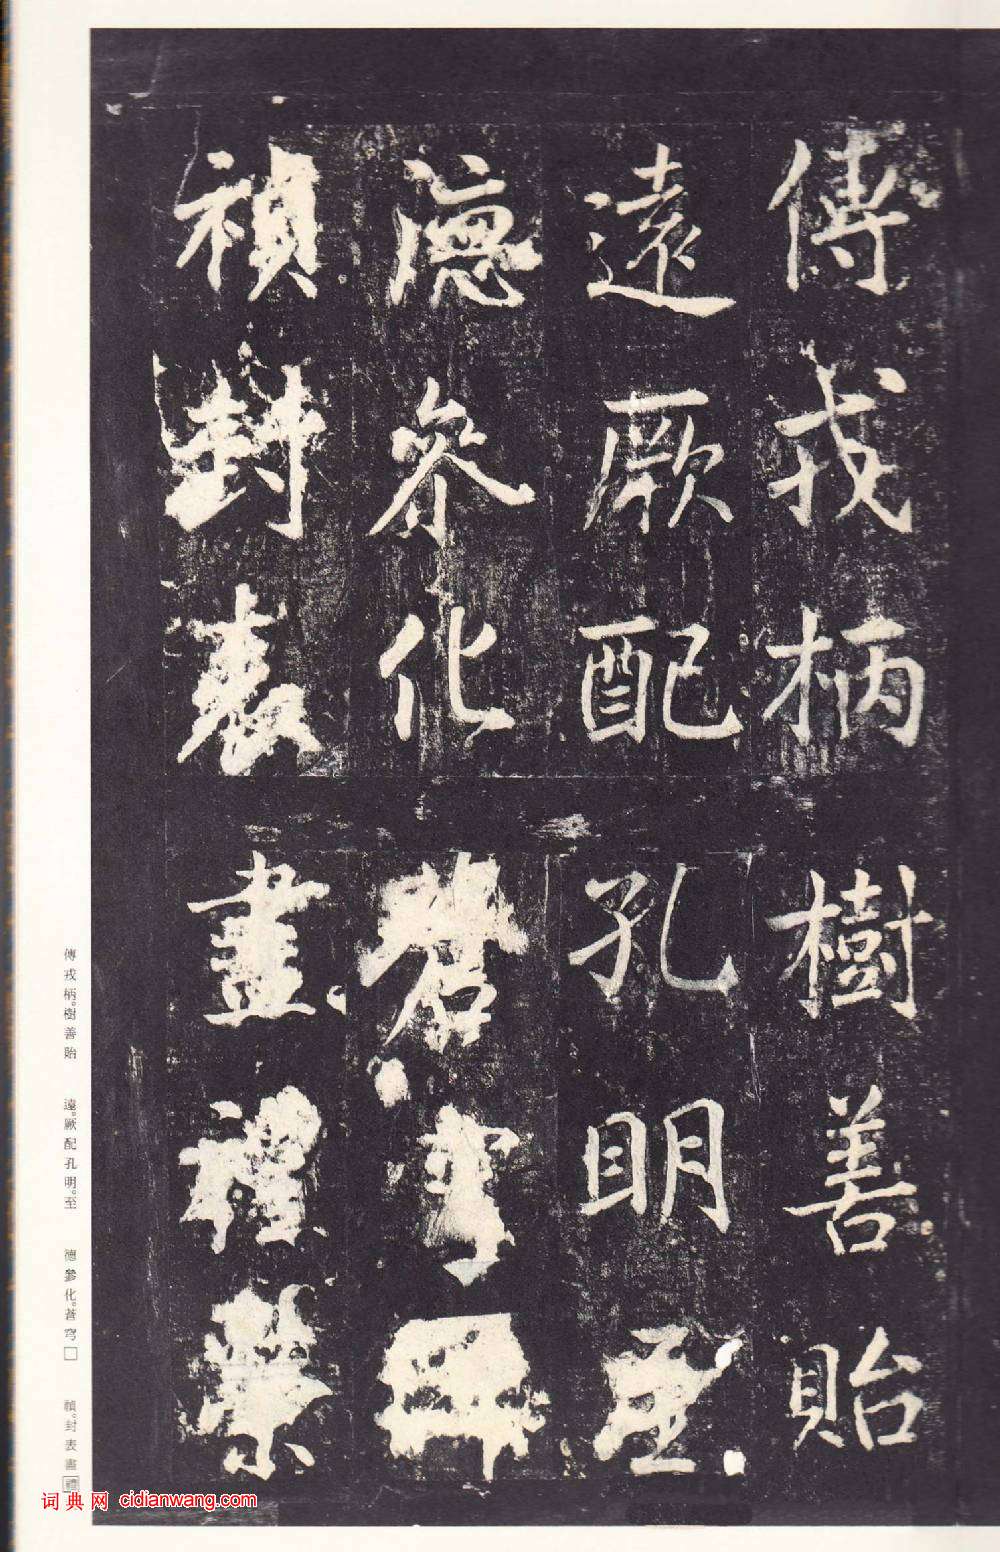 傅戎柄樹善貽
遠厥配孔明至
德參化蒼穹
禎封表畫禮
傅戎柄。樹善貽　遠。厥配孔明。至　德參化。蒼穹□　禎。封表畫禮
词典网 cidianwang.com